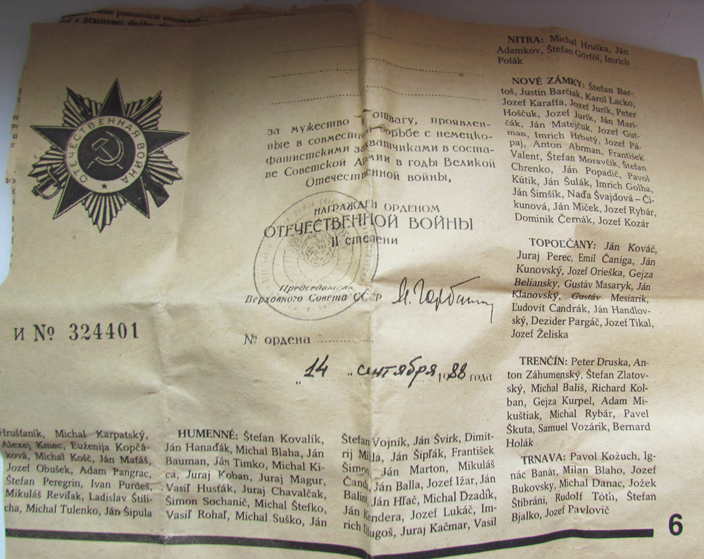 ОТЕЧЕСТВЕННАЯ ВОЙНА
за мужество и отвагу, проявлен-
ные в совместной борьбе с немецко-
фашистскими захватчиками в соста-
ве Советской Армии в годы Великой
Отечественной войны,
НАГРАЖДЕН ОРДЕНОМ
ОТЕЧЕСТВЕННОЙ ВОЙНЫ
II степени
Председатель
Верховного Совета СССР
И № 324401
№ ордена
"14" сентября 1988 года
Hruštaník, Michal Karpatský,
Alexej Kmec, Euženija Kopčá-
Michal Košč, Ján Mafáš,
Jozef Obušek, Adam Pangrac,
Štefan Peregrin, Ivan Purdeš,
Mikuláš Revilák, Ladislav Štili-
cha, Michal Tulenko, Ján Šipula
HUMENNÉ: Štefan Kovalík,
Ján Hanaďák, Michal Blaha, Ján
Bauman, Ján Timko, Michal Ki-
ca, Juraj Koban, Juraj Magur,
Vasiľ Husťák, Juraj Chavalčak,
Šimon Sochanič, Michal Štefko,
Vasiľ Rohaľ, Michal Suško, Ján
Štefan Vojník, Ján Švirk, Dimit-
rij Ján Šipľák, František
Ján Marton, Mikuláš
Ján Balla, Jozef Ižar, Ján
Ján Hľač, Michal Dzadík,
Jozef Lukáč, Im-
rich Juraj Kačmar, Vasil
NITRA: Michal Hruška, Ján
Adamkov, Štefan Görföl, Imrich
Polák
NOVÉ ZÁMKY: Štefan Bar-
toš, Justín Barčiak, Karol Lacko,
Jozef Karaffa, Jozef Jurík, Peter
Hoščuk, Jozef Jurík, Ján Mari-
čák, Ján Matejčuk, Jozef Gut-
man, Imrich Hrbatý, Jozef Pá-
paj, Anton Abrman, František
Valent, Štefan Moravčík, Štefan
Chrenko, Ján Popadič, Pavol
Kútik, Ján Šulák, Imrich Golha,
Ján Šimšík, Naďa Švajdová – Či-
kunová, Ján Miček, Jozef Rybár,
Dominik Černák, Jozef Kozár
TOPOĽČANY: Ján Kováč,
Juraj Perec, Emil Čaniga, Ján
Kunovský, Jozef Orieška, Gejza
Beliansky, Gustáv Masaryk, Ján
Klanovský, Gustáv Mesiarik,
Ľudovít Candrák, Ján Handlov-
ský, Dezider Pargáč, Jozef Tikal,
Jozef Želiska
TRENČÍN: Peter Druska, An-
ton Záhumenský, Štefan Zlatov-
ský, Michal Bališ, Richard Kol-
ban, Gejza Kurpel, Adam Mi-
kuštiak, Michal Rybár, Pavel
Škuta, Samuel Vozárik, Bernard
Holák
TRNAVA: Pavol Kožuch, Ig-
nác Banár, Milan Blaho, Jozef
Bukovský, Michal Danac, Jožek
Štibráni, Rudolf Tóth, Štefan
Bjalko, Jozef Pavlovič
6